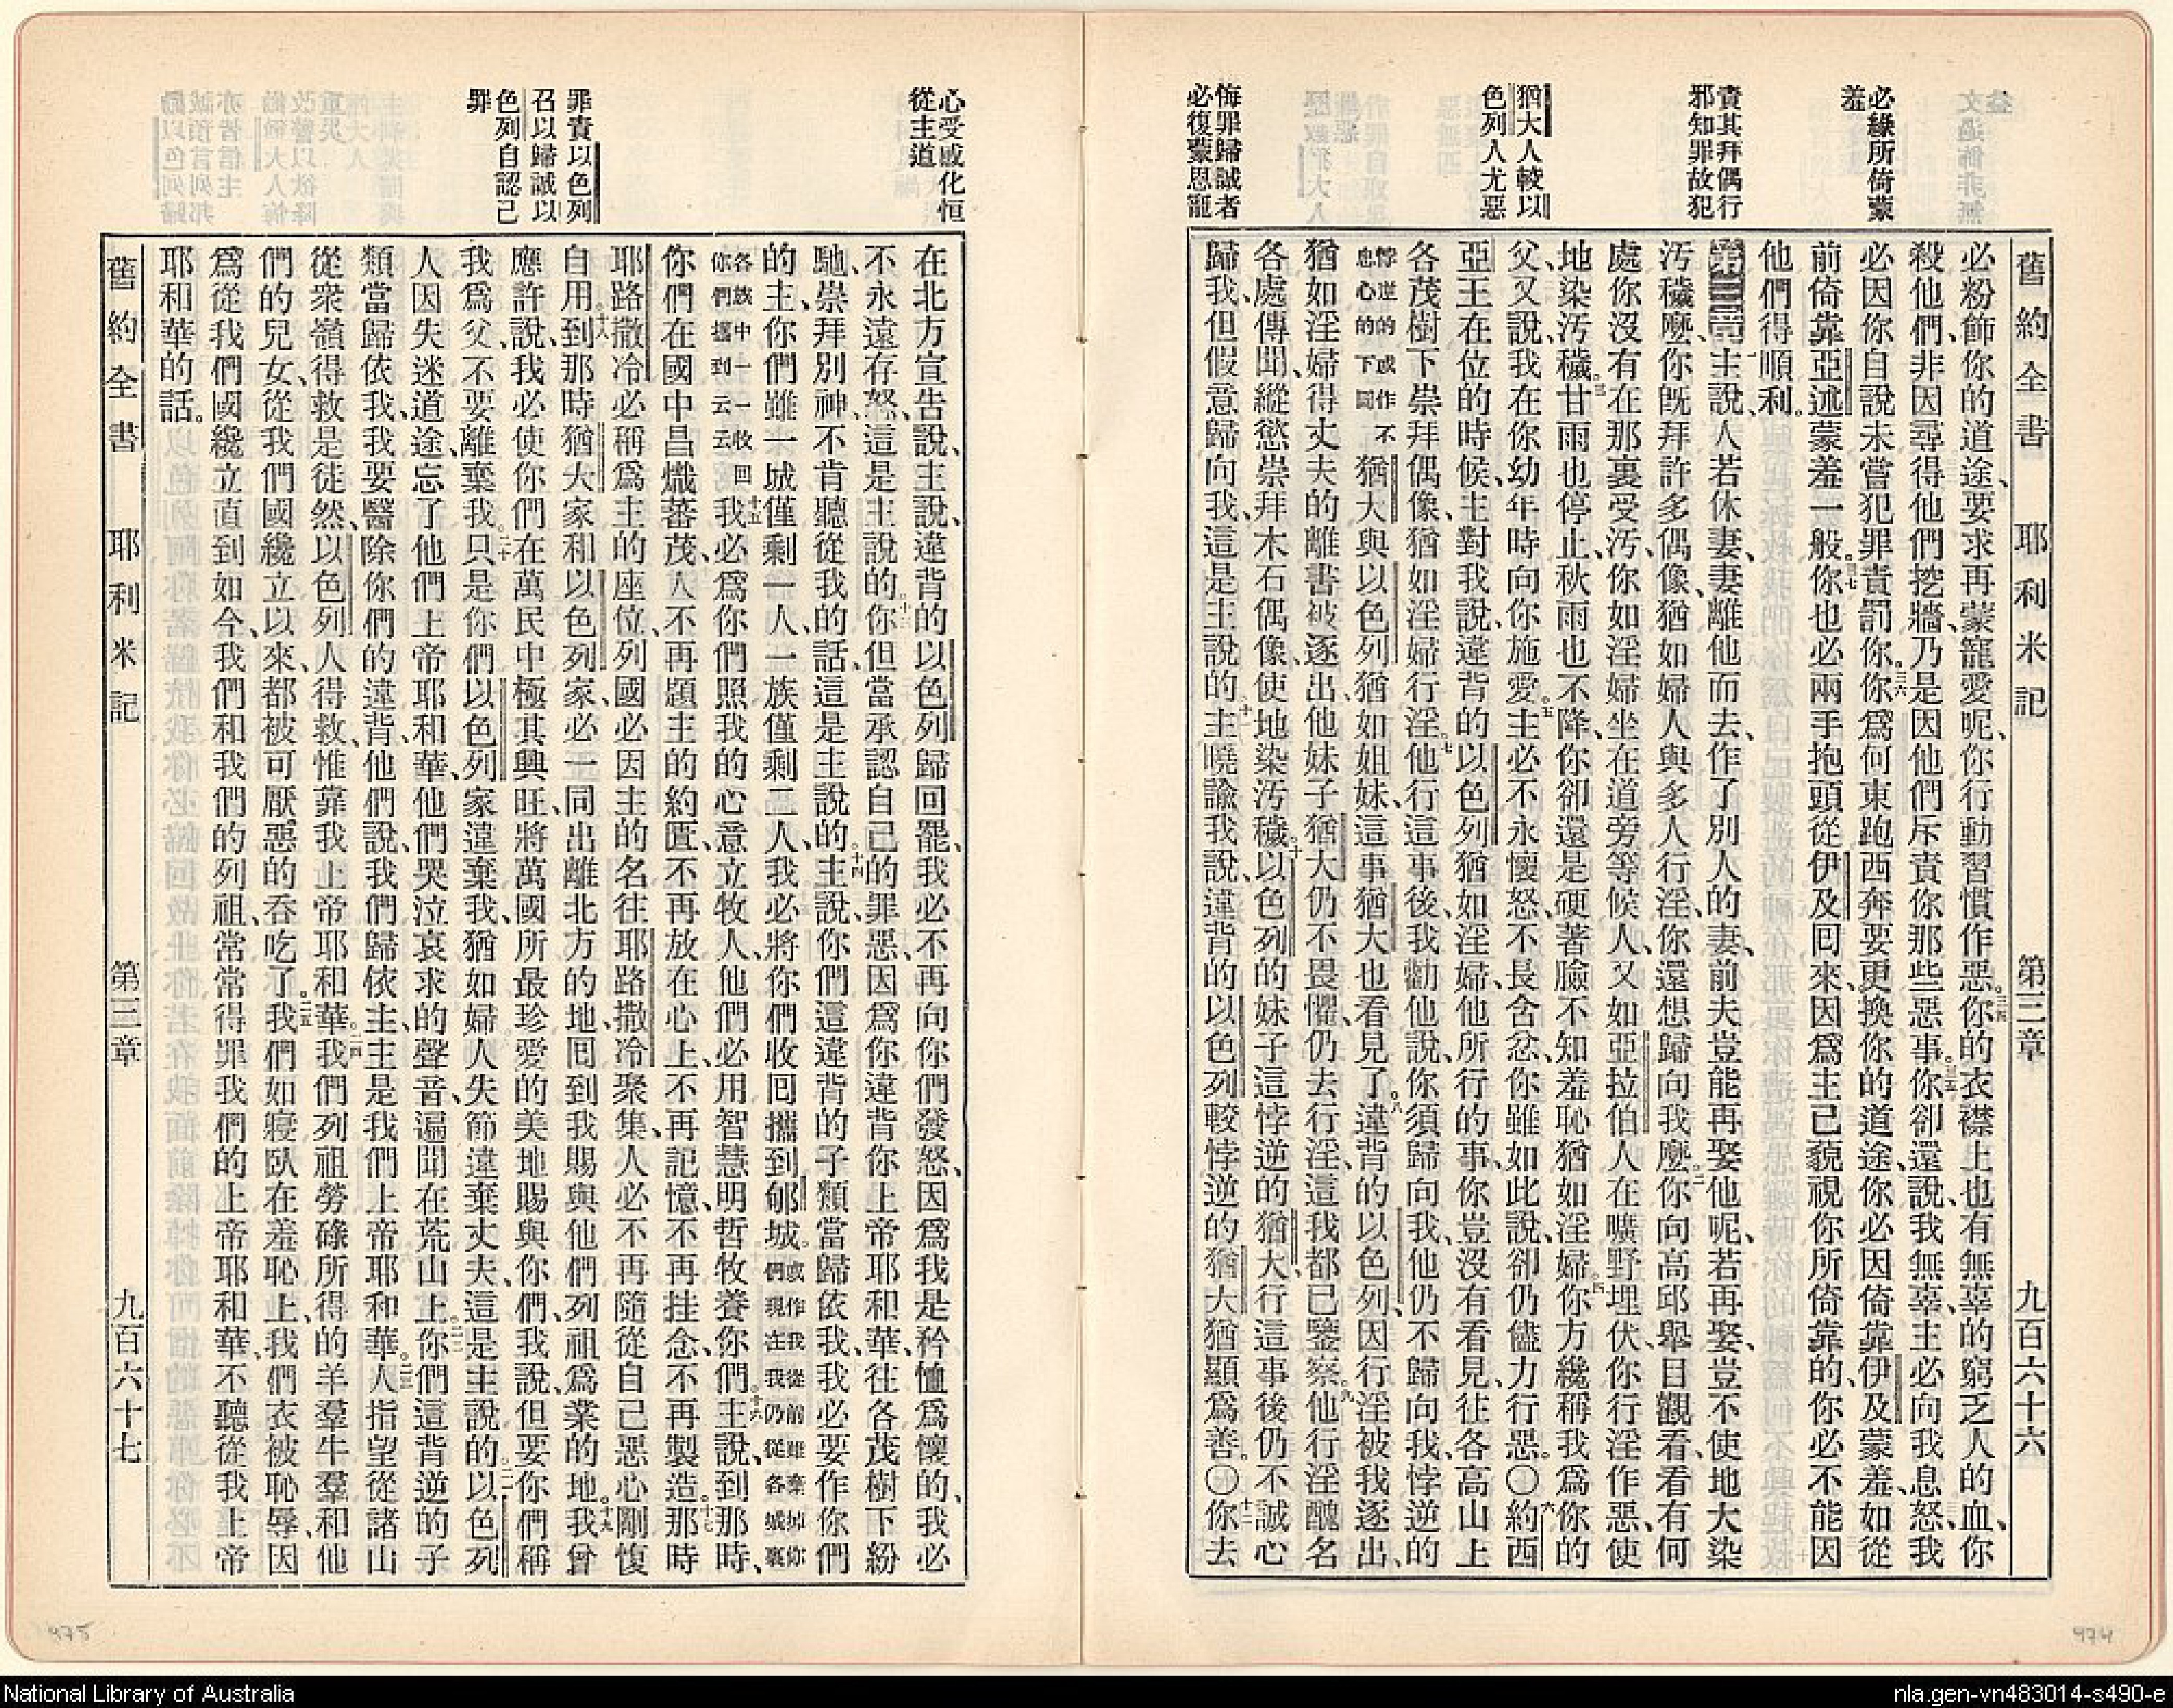 舊約全書 耶利米記 第三章 九百六十六
必緣所倚蒙
羞
責其拜偶行
邪知罪故犯
猶大人較以
色列人尤惡
悔罪歸誠者
必復蒙恩寵
必粉飾你的道途、要求再蒙寵愛呢、你行動習慣作惡。三四你的衣襟上也有無辜的窮乏人的血、你
殺他們、非因尋得他們挖牆、乃是因他們斥責你那些惡事。三五你卻還說、我無辜、主必向我息怒、我
必因你自說未嘗犯罪責罰你。三六你爲何東跑西奔、要更換你的道途、你必因倚靠伊及蒙羞、如從
前倚靠亞述蒙羞一般。三七你也必兩手抱頭從伊及囘來、因爲主已藐視你所倚靠的、你必不能因
他們得順利。
第三章 一主說、人若休妻、妻離他而去、作了別人的妻、前夫豈能再娶他呢、若再娶、豈不使地大染
汚穢麼、你旣拜許多偶像、猶如婦人與多人行淫、你還想歸向我麼。二你向高邱舉目觀看、看有何
處你沒有在那裏受汚、你如淫婦坐在道旁等候人、又如亞拉伯人在曠野埋伏、你行淫作惡、使
地染汚穢。三甘雨也停止、秋雨也不降、你卻還是硬著臉不知羞恥、猶如淫婦。四你方纔稱我爲你的
父、又說、我在你幼年時向你施愛。五主必不永懷怒、不長含忿、你雖如此說、卻仍儘力行惡。〇六約西
亞王在位的時候、主對我說、違背的以色列猶如淫婦、他所行的事、你豈沒有看見、往各高山上
各茂樹下崇拜偶像、猶如淫婦行淫。七他行這事後、我勸他說、你須歸向我、他仍不歸向我、悖逆的
悖逆的或作不忠心的下同猶大與以色列猶如姐妹、這事猶大也看見了。八違背的以色列、因行淫被我逐出、
猶如淫婦得丈夫的離書被逐出、他妹子猶大仍不畏懼、仍去行淫、這我都已鑒察。九他行淫醜名
各處傳聞、縱慾崇拜木石偶像、使地染汚穢。十以色列的妹子這悖逆的猶大、行這事後、仍不誠心
歸我、但假意歸向我、這是主說的。十一主曉諭我說、違背的以色列較悖逆的猶大猶顯爲善。〇十二你去
心受感化恒
從主道
罪責以色列
召以歸誠以
色列自認己
罪
在北方宣告說、主說、違背的以色列歸回罷、我必不再向你們發怒、因爲我是矜恤爲懷的、我必
不永遠存怒、這是主說的。十三你但當承認自己的罪惡、因爲你違背你上帝耶和華、往各茂樹下紛
馳、崇拜別神、不肯聽從我的話、這是主說的。十四主說、你們這違背的子類當歸依我、我必要作你們
的主、你們雖一城僅剩一人、一族僅剩二人、我必將你們收囘攜到郇城。或作我從前雖棄掉你們現在我仍從各城裏
各族中一一收回你們攜到云云十五我必爲你們照我的心意立牧人、他們必用智慧明哲牧養你們。十六主說、到那時、
你們在國中昌熾蕃茂、人不再題主的約匱、不再放在心上、不再記憶、不再挂念、不再製造。十七那時
耶路撒冷必稱爲主的座位、列國必因主的名往耶路撒冷聚集、人必不再隨從自己惡心剛愎
自用。十八到那時猶大家和以色列家、必一同出離北方的地、囘到我賜與他們列祖爲業的地。十九我曾
應許說、我必使你們在萬民中極其興旺、將萬國所最珍愛的美地賜與你們、我說、但要你們稱
我爲父、不要離棄我。二十只是你們以色列家違棄我、猶如婦人失節違棄丈夫、這是主說的。二一以色列
人因失迷道途、忘了他們上帝耶和華、他們哭泣哀求的聲音、遍聞在荒山上。二二你們這背逆的子
類當歸依我、我要醫除你們的違背、他們說、我們歸依主、主是我們上帝耶和華。二三人指望從諸山
從衆嶺得救是徒然、以色列人得救、惟靠我上帝耶和華。二四我們列祖勞碌所得的羊羣牛羣和他
們的兒女、從我們國纔立以來、都被可厭惡的吞吃了。二五我們如寢臥在羞恥上、我們衣被恥辱、因
爲從我們國纔立直到如今、我們和我們的列祖、常常得罪我們的上帝耶和華、不聽從我上帝
耶和華的話。
舊約全書 耶利米記 第三章 九百六十七
475
474
National Library of Australia
nla.gen-vn483014-s490-e